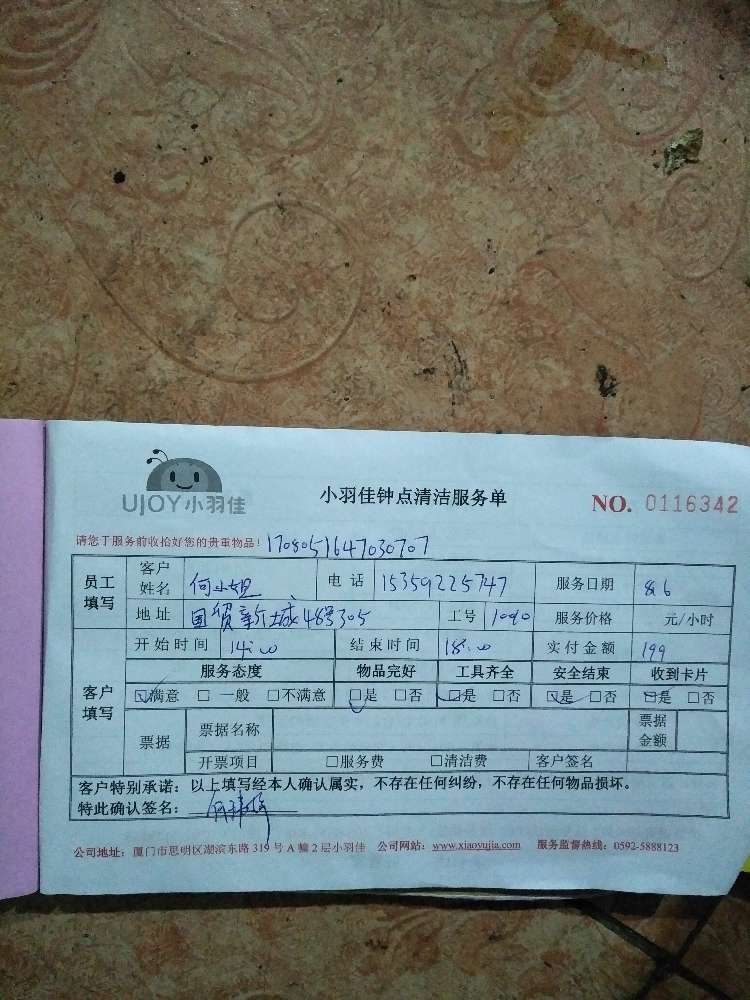 UJOY小羽佳
小羽佳钟点清洁服务单
NO. 0116342
请您于服务前收拾好您的贵重物品! 1708051647030707
员工填写 客户姓名 何小姐 电话 15359225747 服务日期 8.6
地址 国贸新城48号305 工号 1090 服务价格 元/小时
客户填写 开始时间 14:00 结束时间 18:00 实付金额 199
服务态度 物品完好 工具齐全 安全结束 收到卡片
☑满意 □一般 □不满意 ☑是 □否 ☑是 □否 ☑是 □否 ☑是 □否
票据 票据名称 票据金额
开票项目 □服务费 □清洁费 客户签名
客户特别承诺：以上填写经本人确认属实，不存在任何纠纷，不存在任何物品损坏。
特此确认签名：
公司地址：厦门市思明区湖滨东路 319 号 A 幢 2 层小羽佳 公司网站：www.xiaoyujia.com 服务监督热线：0592-5888123